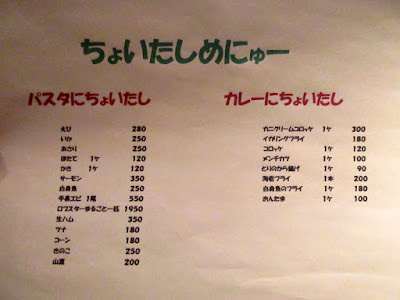 ちょいたしめにゅー
パスタにちょいたし
えび 280
いか 250
あさり 250
ほたて 1ヶ 120
かき 1ヶ 120
サーモン 350
白身魚 250
手長エビ 1尾 550
ロブスターまるごと一匹 1950
生ハム 350
ツナ 180
コーン 180
きのこ 250
山菜 200
カレーにちょいたし
カニクリームコロッケ 1ヶ 300
イカリングフライ 180
コロッケ 1ヶ 120
メンチカツ 1ヶ 100
とりのから揚げ 1ヶ 90
海老フライ 1本 200
白身魚のフライ 1ヶ 180
おんたま 1ヶ 100